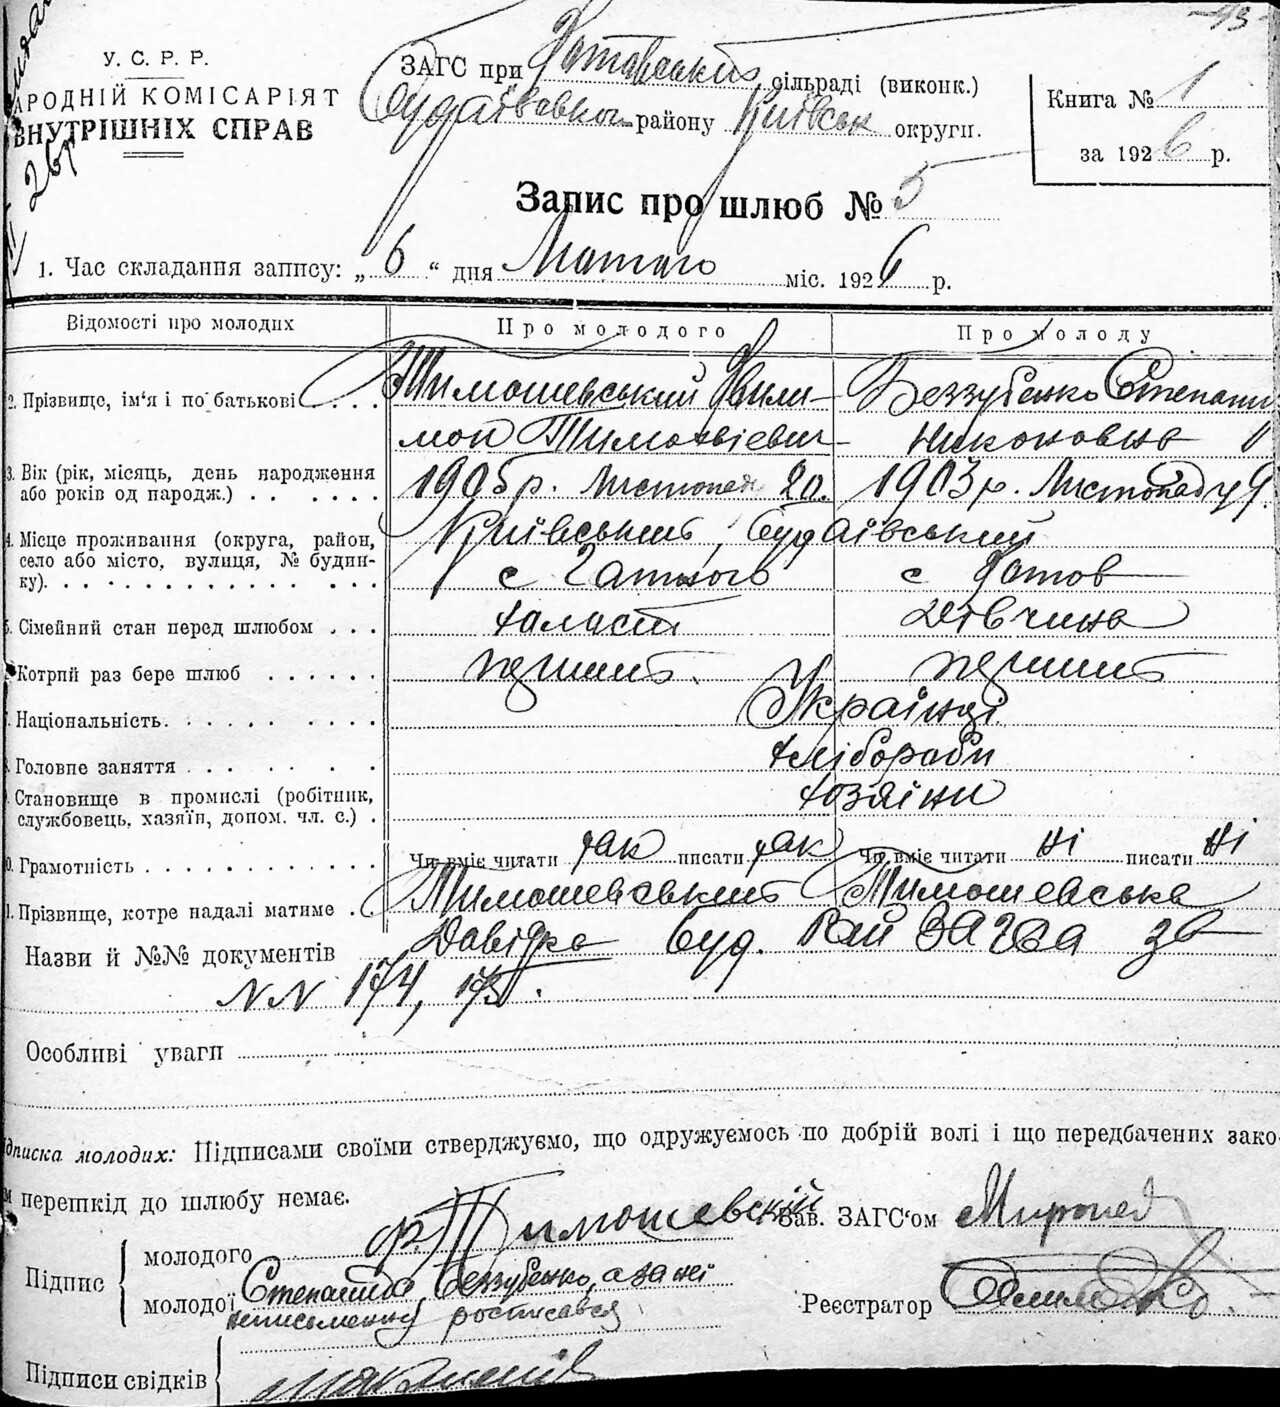 -43-
У. С. Р. Р.
АРОДНІЙ КОМІСАРІЯТ
ВНУТРІШНІХ СПРАВ
ЗАГС при Хотовський сільраді (виконк.)
Будаївськ району Київськ округи.
Книга № 1
за 1926 р.
Запис про шлюб № 5
1. Час складання запису: „ 6 “ дня Лютого міс. 1926 р.
Відомості про молодих
Про молодого
Про молоду
2. Прізвище, ім'я і по батькові . . . .
Тимошевський Фили-
мон Тимофвіевич
Беззубенко Степани
Никоновна
3. Вік (рік, місяць, день народження
або років од народж.) . . . . . .
1905 р. Листопад 20.
1903 р. Листопаду 9.
4. Місце проживання (округа, район,
село або місто, вулиця, № будин-
ку).
Київський, Будаівський
с Гатного
с Хотов
5. Сімейний стан перед шлюбом . . .
халаст
дівчина
Котрий раз бере шлюб . . . . . .
перший
перший
Національність.
Українці
Головне заняття
хлібороби
Становище в промислі (робітник,
службовець, хазяїн, допом. чл. с.) .
хозяіни
Грамотність
Чи вміє читати так писати так
Чи вміє читати ні писати ні
Прізвище, котре надалі матиме . .
Тимошевський
Тимошевська
Назви й №№ документів Довідка Буд. Рай ЗАГСа за
NN 174, 173.
Особливі уваги
дписка молодих: Підписами своїми стверджуємо, що одружуємось по добрій волі і що передбачених зако-
м перешкід до шлюбу немає.
Підпис
молодого Ф. Тимошевский
молодої Степанида Беззубенко, а за неї
неписьменну росписався
Зав. ЗАГС'ом
Реєстратор
Підписи свідків